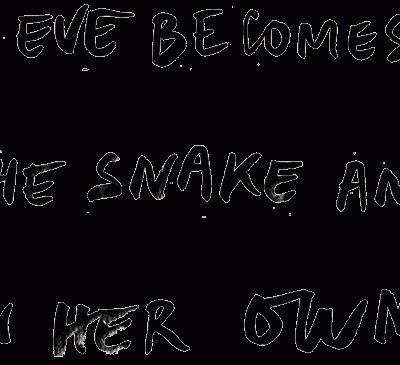 EVE BECOMES
HE SNAKE AN
HER OWN